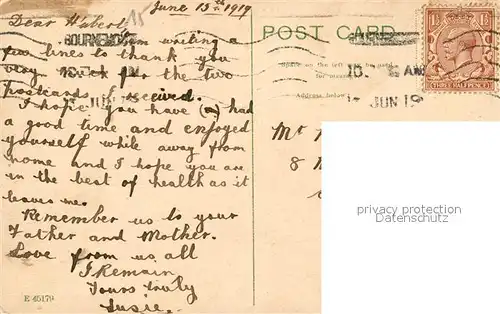 June 13th 1919
Dear Hubert
am writing a
few lines to thank you
very much for the two
postcards I received.
I hope you have (a) had
a good time and enjoyed
yourself while away from
home and I hope you are
in the best of health as it
leaves me.
Remember us to your
Father and Mother.
Love from us all
I Remain
Yours truly
Susie.
E 45179
BOURNEMOUTH
JUN
POST CARD.
Space on the left to be used
for message.
Address below.
10. AM
JUN 19
THREE HALFPENCE
Mr
8
privacy protection
Datenschutz